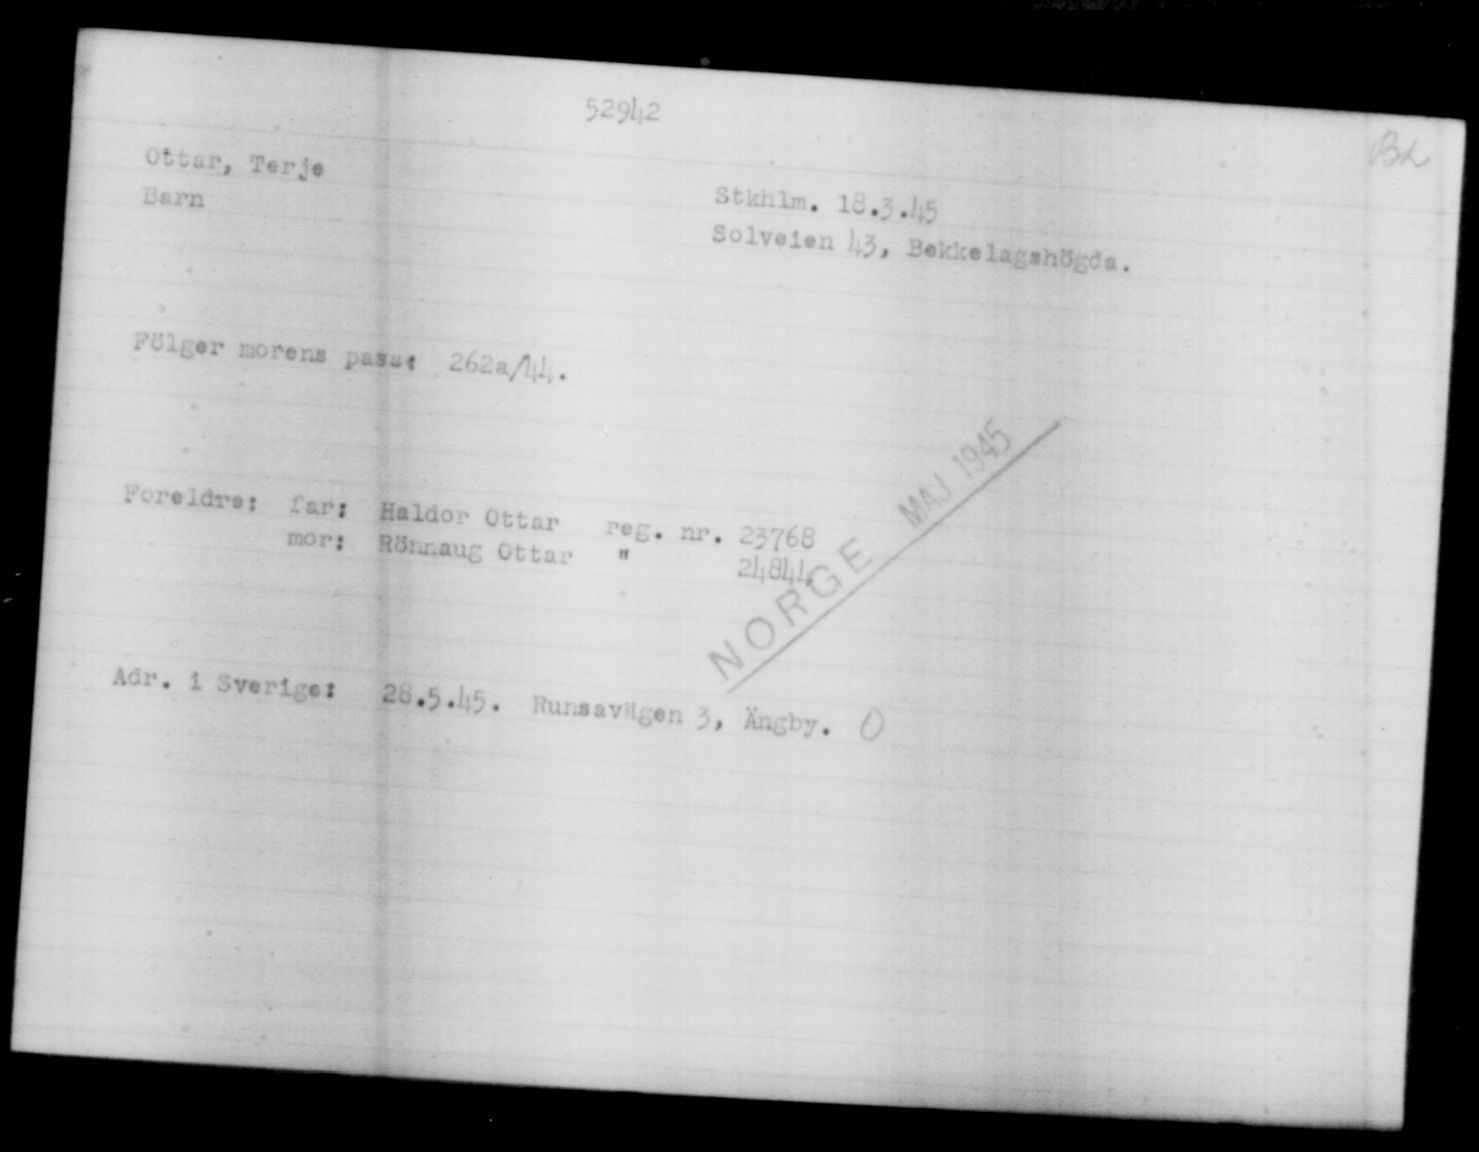 52942
Bh
Ottar, Terje
Barn
Stkhlm. 18.3.45
Solveien 43, Bekkelagshögda.
Fölger morens pass: 262a/44.
Foreldre: far: Haldor Ottar reg. nr. 23768
mor: Rönnaug Ottar " 24844
NORGE MAJ 1945
Adr. i Sverige: 28.5.45. Runsavägen 3, Ängby. O